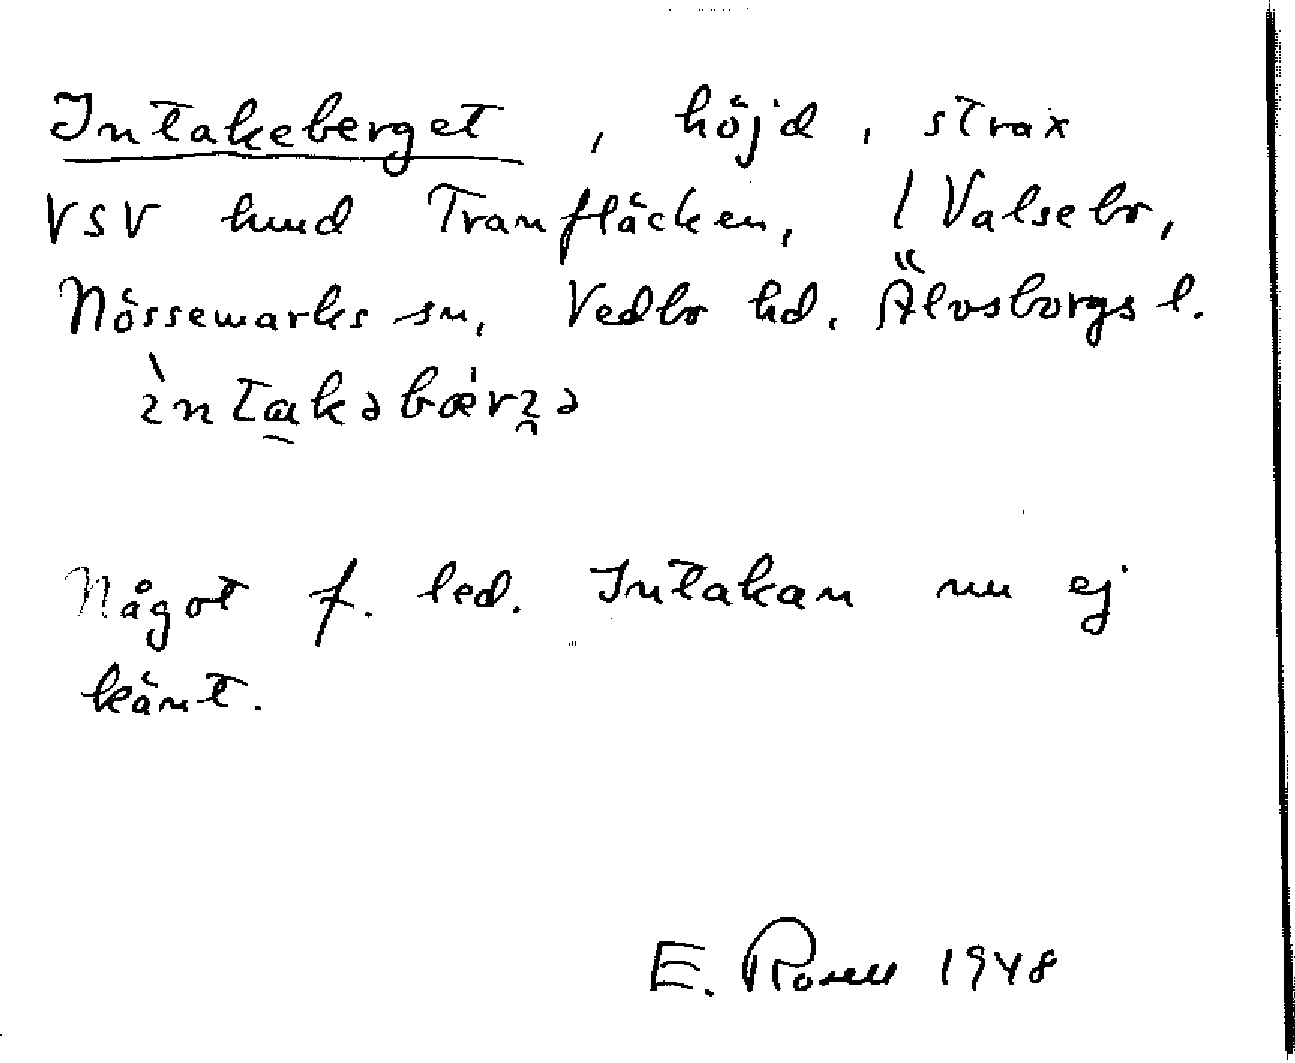 Intakeberget, höjd, strax
VSV hmd Tranfläcken, / Valsebo,
Nössemarks sn, Vedbo hd. Älvsborgs l.
ìntakəbæ̀rʒə
Något f. led. Intakan nu ej
känt.
E. Rosell 1948